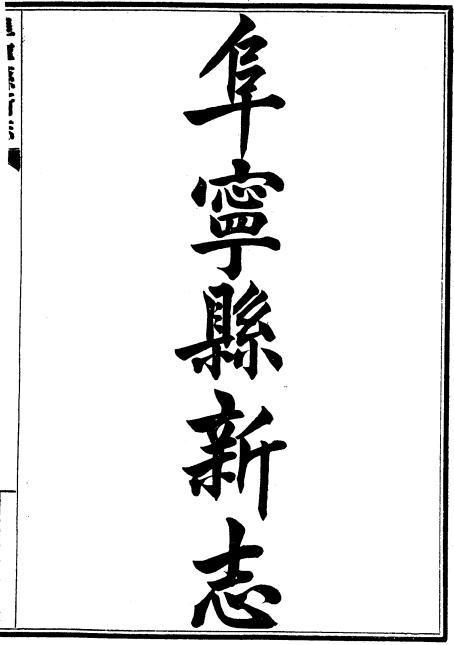 阜寧縣新志